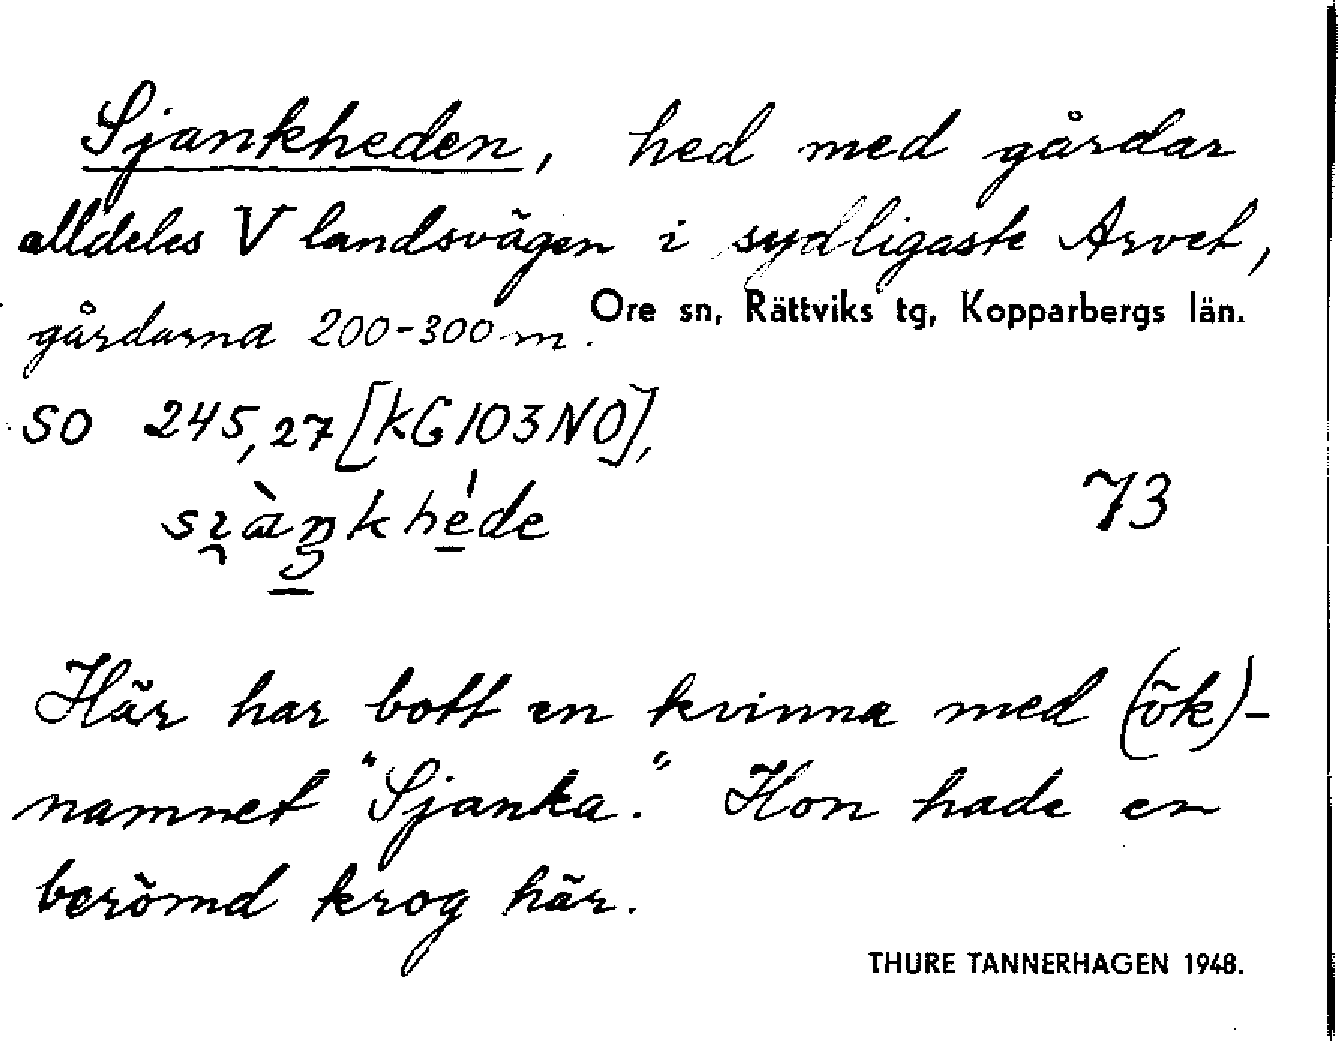 Sjankheden, hed med gårdar
alldeles V landsvägen i sydligaste Arvet,
gårdarna 200-300 m.
Ore sn, Rättviks tg, Kopparbergs län.
SO 245,27 [KG 103 NO],
73
Här har bott en kvinna med (ök)-
namnet "Sjanka." Hon hade en
berömd krog här.
THURE TANNERHAGEN 1948.